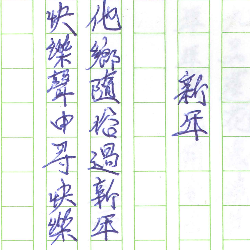 新年
他鄉隨俗過新年
快樂聲中尋快樂